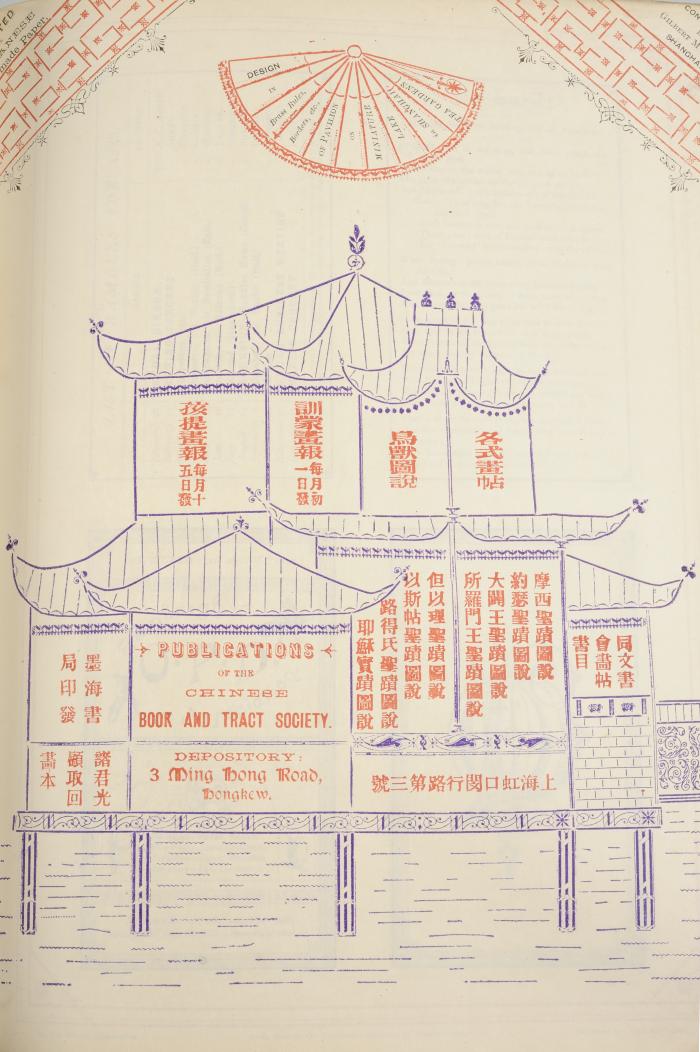 made Paper.
GILBERT
DESIGN
IN
Brass Rules,
Borders, etc.,
OF PAVILION
ON
MINIATURE
LAKE
in SHANGHAI
(TEA GARDENS)
各式畫帖
鳥獸圖說
訓蒙畫報
每月初
一日發
孩提畫報
每月十
五日發
同文書
會畫帖
書目
摩西聖蹟圖說
約瑟聖蹟圖說
大闢王聖蹟圖說
所羅門王聖蹟圖說
但以理聖蹟圖說
以斯帖聖蹟圖說
路得氏聖蹟圖說
耶穌實蹟圖說
上海虹口閔行路第三號
PUBLICATIONS
OF THE
CHINESE
BOOK AND TRACT SOCIETY.
DEPOSITORY:
3 Ming Hong Road,
Hongkew.
墨海書
局印發
諸君光
顧取回
畫本